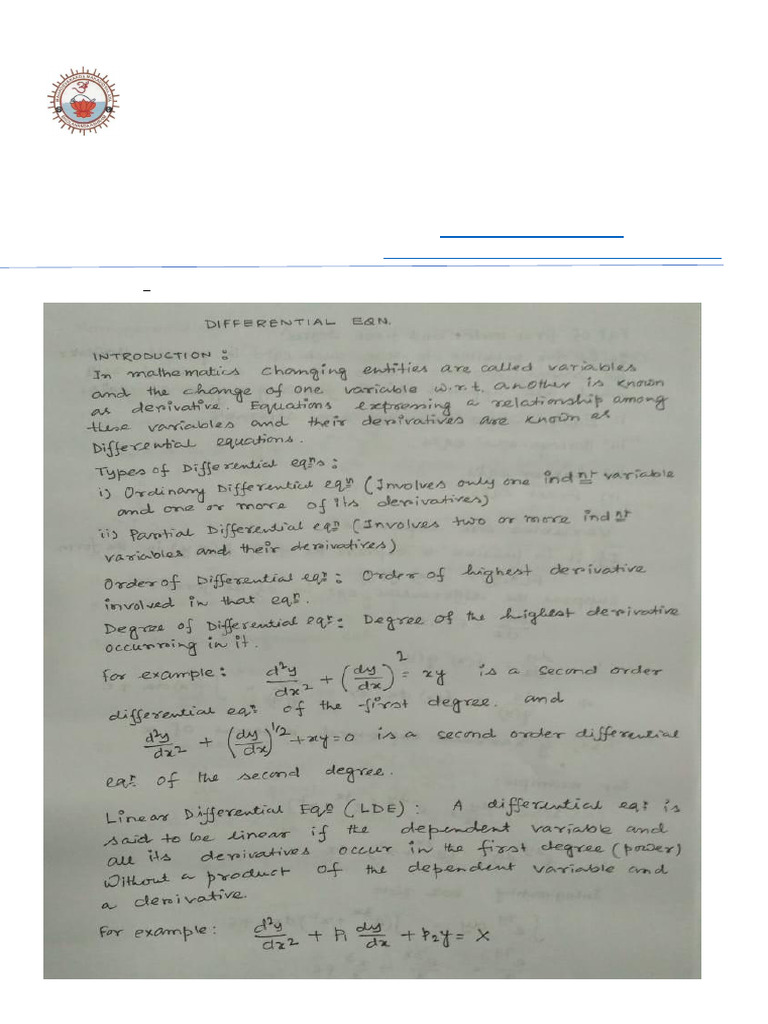 DIFFERENTIAL EQN.
INTRODUCTION :
In mathematics changing entities are called variables
and the change of one variable w.r.t. another is known
as derivative. Equations expressing a relationship among
these variables and their derivatives are known as
Differential equations.
Types of Differential eqns :
i) Ordinary Differential eqn (Involves only one indnt variable
and one or more of its derivatives)
ii) Partial Differential eqn (Involves two or more indnt
variables and their derivatives)
Order of Differential eqn : Order of highest derivative
involved in that eqn.
Degree of Differential eqn : Degree of the highest derivative
occurring in it.
For example : d²y/dx² + (dy/dx)² = xy is a second order
differential eqn of the first degree. and
d²y/dx² + (dy/dx)^1/2 + xy = 0 is a second order differential
eqn of the second degree.
Linear Differential Eqn (LDE) : A differential eqn is
said to be linear if the dependent variable and
all its derivatives occur in the first degree (power)
without a product of the dependent variable and
a derivative.
For example : d²y/dx² + P₁ dy/dx + P₂y = X